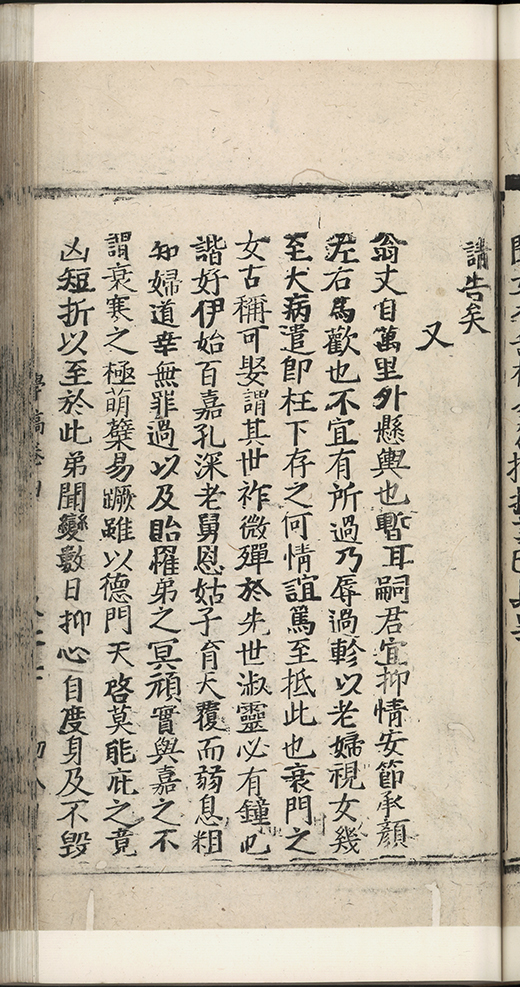 請告矣
又
翁丈自萬里外懸輿也暫耳嗣君宜抑情安節承顏
左右爲歡也不宜有所過乃辱過軫以老婦視女幾
至大病遣即枉下存之何情誼篤至抵此也衰門之
女古稱可娶謂其世祚微殫於先世淑靈必有鐘也
諧好伊始百嘉孔深老舅恩姑子育天覆而弱息粗
知婦道幸無罪過以及貽罹弟之冥頑實與嘉之不
謂衰寒之極萌櫱易蹶雖以德門天啓莫能庇之竟
凶短折以至於此弟聞變數日抑心自度身及不毀